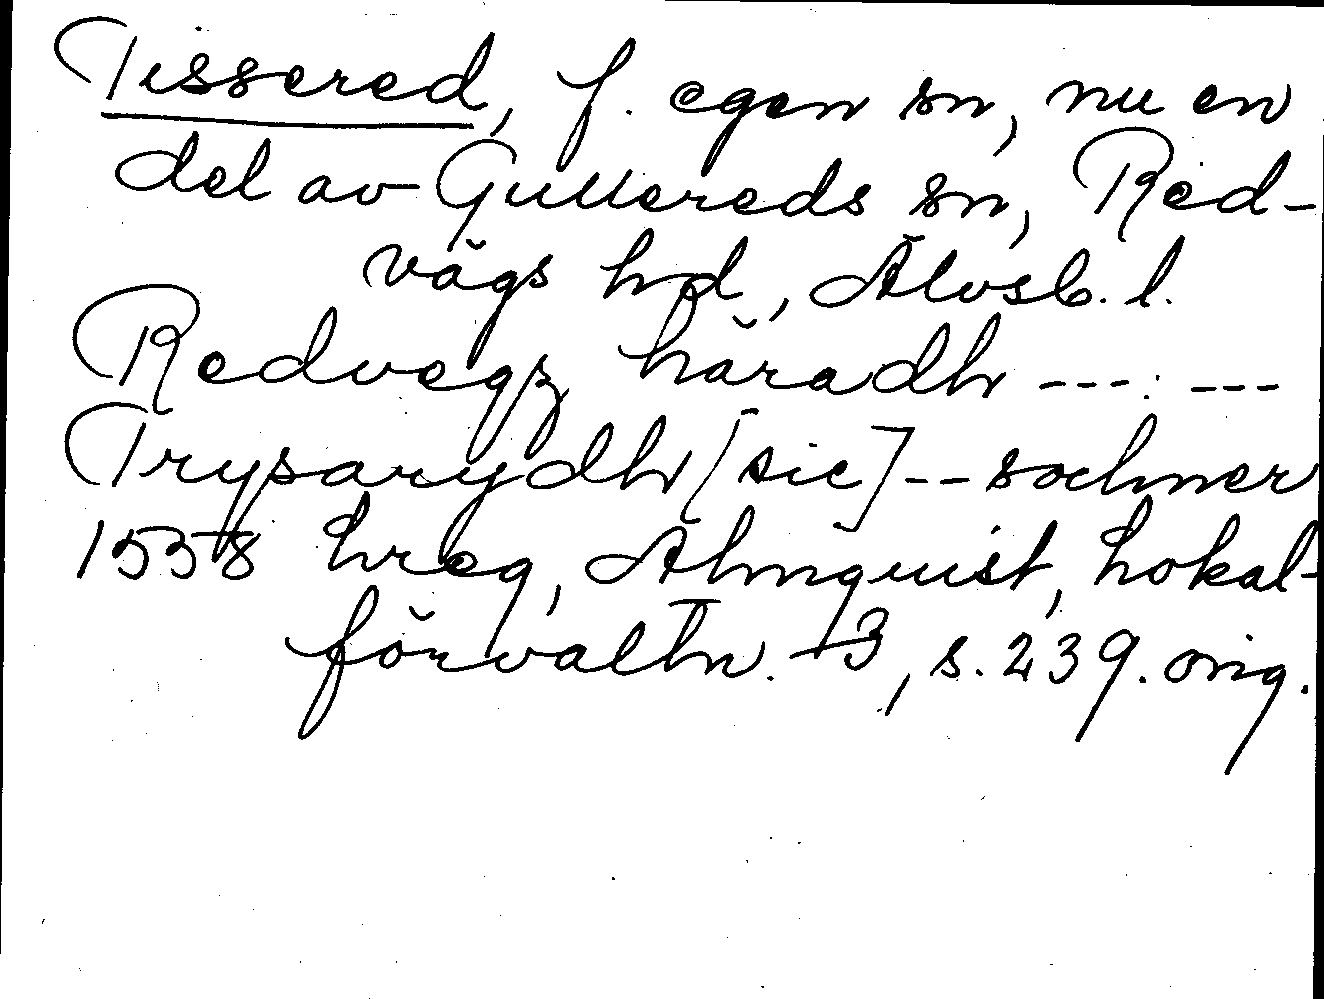 Tissered, f. egen sn, nu en
del av Gullereds sn, Red-
vägs hd, Älvsb. l.
Redvegz häradh --- : ---
Trysarydh [sic] -- sochner
1558 hreg, Almquist, Lokal-
förvaltn. 3, s. 239. orig.